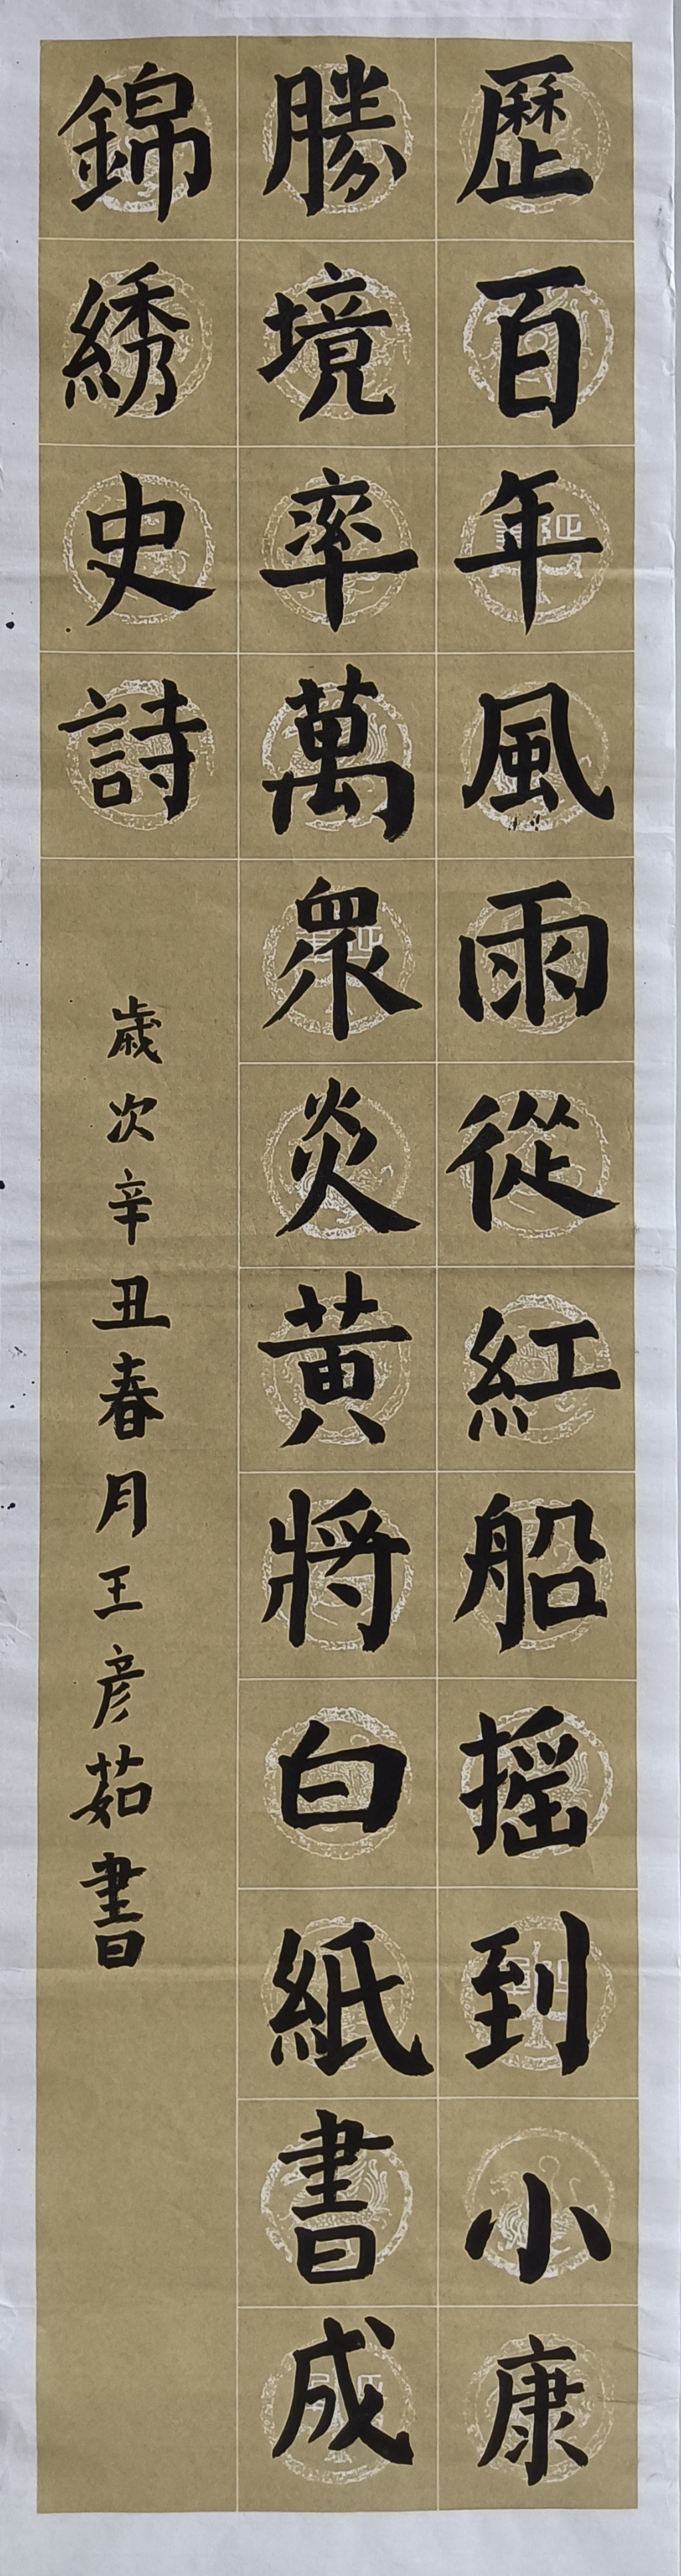 歷百年風雨從紅船摇到小康
勝境率萬眾炎黄將白紙書成
錦綉史詩
歲次辛丑春月王彦茹書